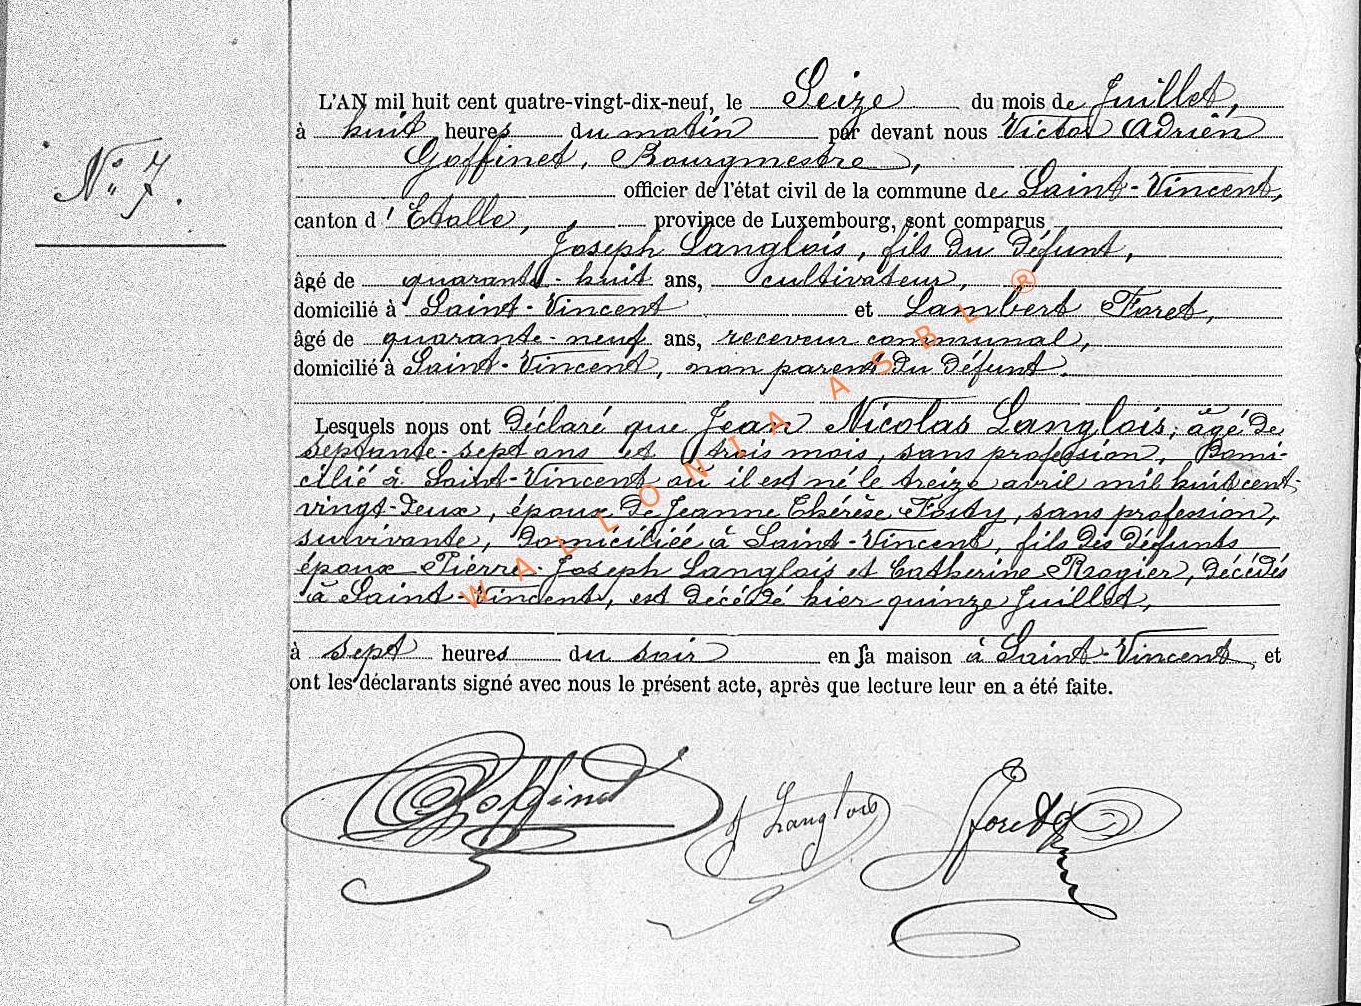 N° 7.
L'AN mil huit cent quatre-vingt-dix-neuf, le Seize du mois de Juillet,
à huit heures du matin par devant nous Victor Adrien
Goffinet, Bourgmestre,
officier de l'état civil de la commune de Saint-Vincent,
canton d'Etalle, province de Luxembourg, sont comparus
Joseph Langlois, fils du défunt,
âgé de quarante-huit ans, cultivateur,
domicilié à Saint-Vincent et Lambert Foret,
âgé de quarante-neuf ans, receveur communal,
domicilié à Saint-Vincent, non parent du défunt.
Lesquels nous ont déclaré que Jean Nicolas Langlois, âgé de
septante-sept ans et trois mois, sans profession, domi-
cilié à Saint-Vincent où il est né le treize avril mil huit cent-
vingt-deux, époux de Jeanne Thérèse Fosty, sans profession,
survivante, domiciliée à Saint-Vincent, fils des défunts
époux Pierre-Joseph Langlois et Catherine Rogier, décédés
à Saint-Vincent, est décédé hier quinze Juillet,
à sept heures du soir en sa maison à Saint-Vincent, et
ont les déclarants signé avec nous le présent acte, après que lecture leur en a été faite.
Goffinet J Langlois Foret
WALLONIA ASBL ®